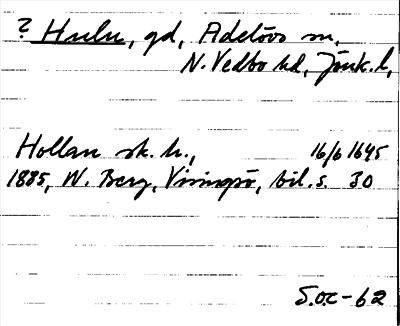 ? Hulu, gd, Adelövs sn,
N. Vedbo hd, Jönk. l,
Hollau sk. h., 16/6 1645
1885, W. Berg, Visingsö, bil. s. 30
S.O.C-62